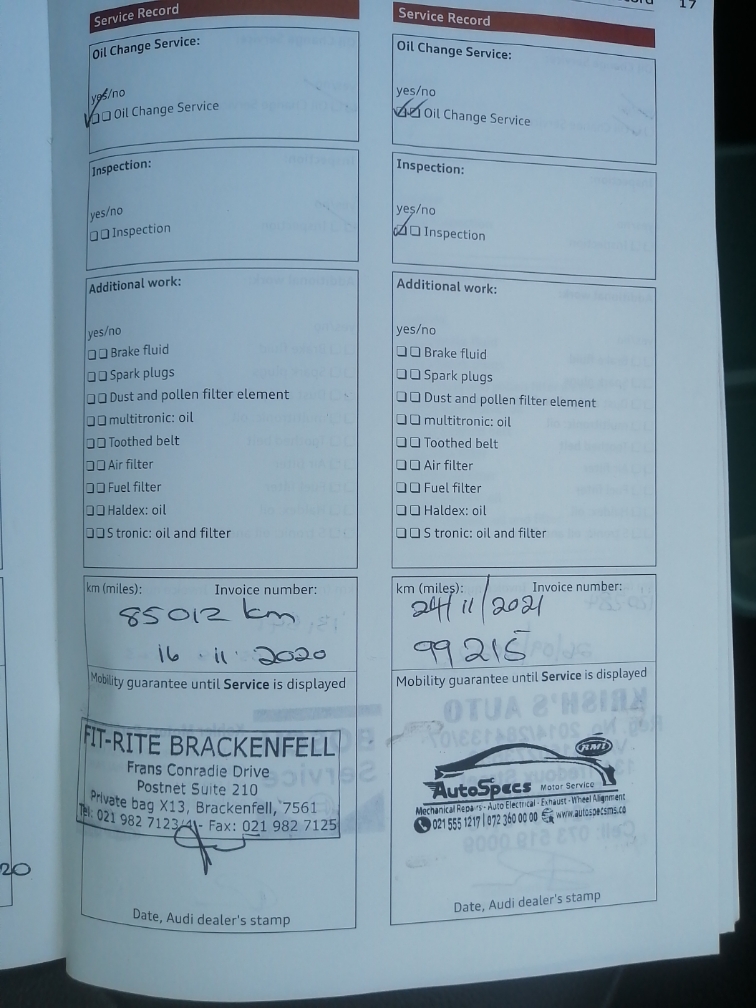 17
Service Record
Oil Change Service:
yes/no
Oil Change Service
Inspection:
yes/no
Inspection
Additional work:
yes/no
Brake fluid
Spark plugs
Dust and pollen filter element
multitronic: oil
Toothed belt
Air filter
Fuel filter
Haldex: oil
S tronic: oil and filter
km (miles): Invoice number:
85012 km
16 . 11 . 2020
Mobility guarantee until Service is displayed
FIT-RITE BRACKENFELL
Frans Conradie Drive
Postnet Suite 210
Private bag X13, Brackenfell, 7561
Tel: 021 982 7123/4 - Fax: 021 982 7125
Date, Audi dealer's stamp
Service Record
Oil Change Service:
yes/no
Oil Change Service
Inspection:
yes/no
Inspection
Additional work:
yes/no
Brake fluid
Spark plugs
Dust and pollen filter element
multitronic: oil
Toothed belt
Air filter
Fuel filter
Haldex: oil
S tronic: oil and filter
km (miles): Invoice number:
24/11/2021
99215
Mobility guarantee until Service is displayed
RMI
AutoSpecs Motor Service
Mechanical Repairs - Auto Electrical - Exhaust - Wheel Alignment
021 555 1217 | 072 360 00 00 www.autospecsms.co
Date, Audi dealer's stamp
20